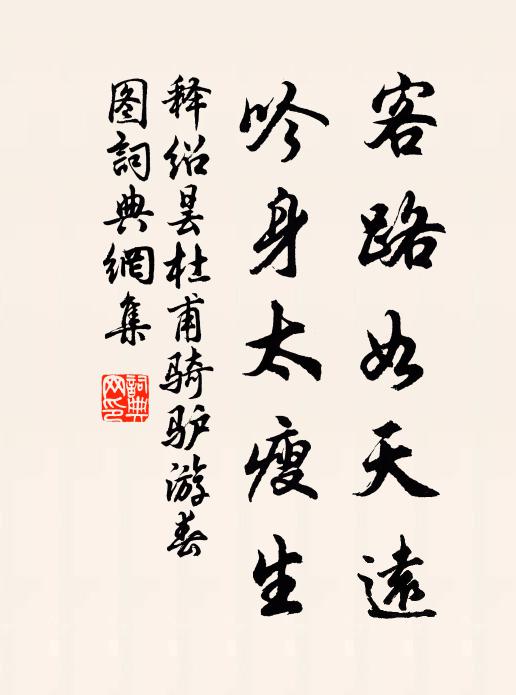 客路如天遠
吟身太瘦生
释绍昙杜甫骑驴游春
图詞典網集
詞典
网印